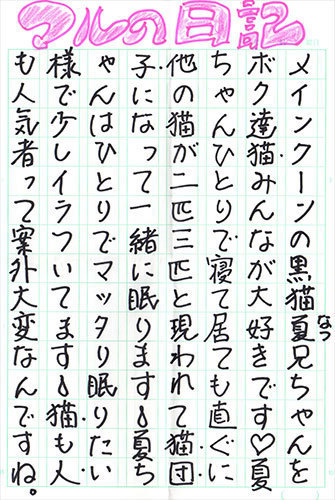 マルの日記
メインクーンの黒猫夏兄ちゃんを
なつ
ボク達猫みんなが大好きです♡夏
ちゃんひとりで寝て居ても直ぐに
他の猫が二匹三匹と現われて猫団
子になって一緒に眠ります！夏ち
ゃんはひとりでマッタリ眠りたい
様で少しイラついてます！猫も人
も人気者って案外大変なんですね。